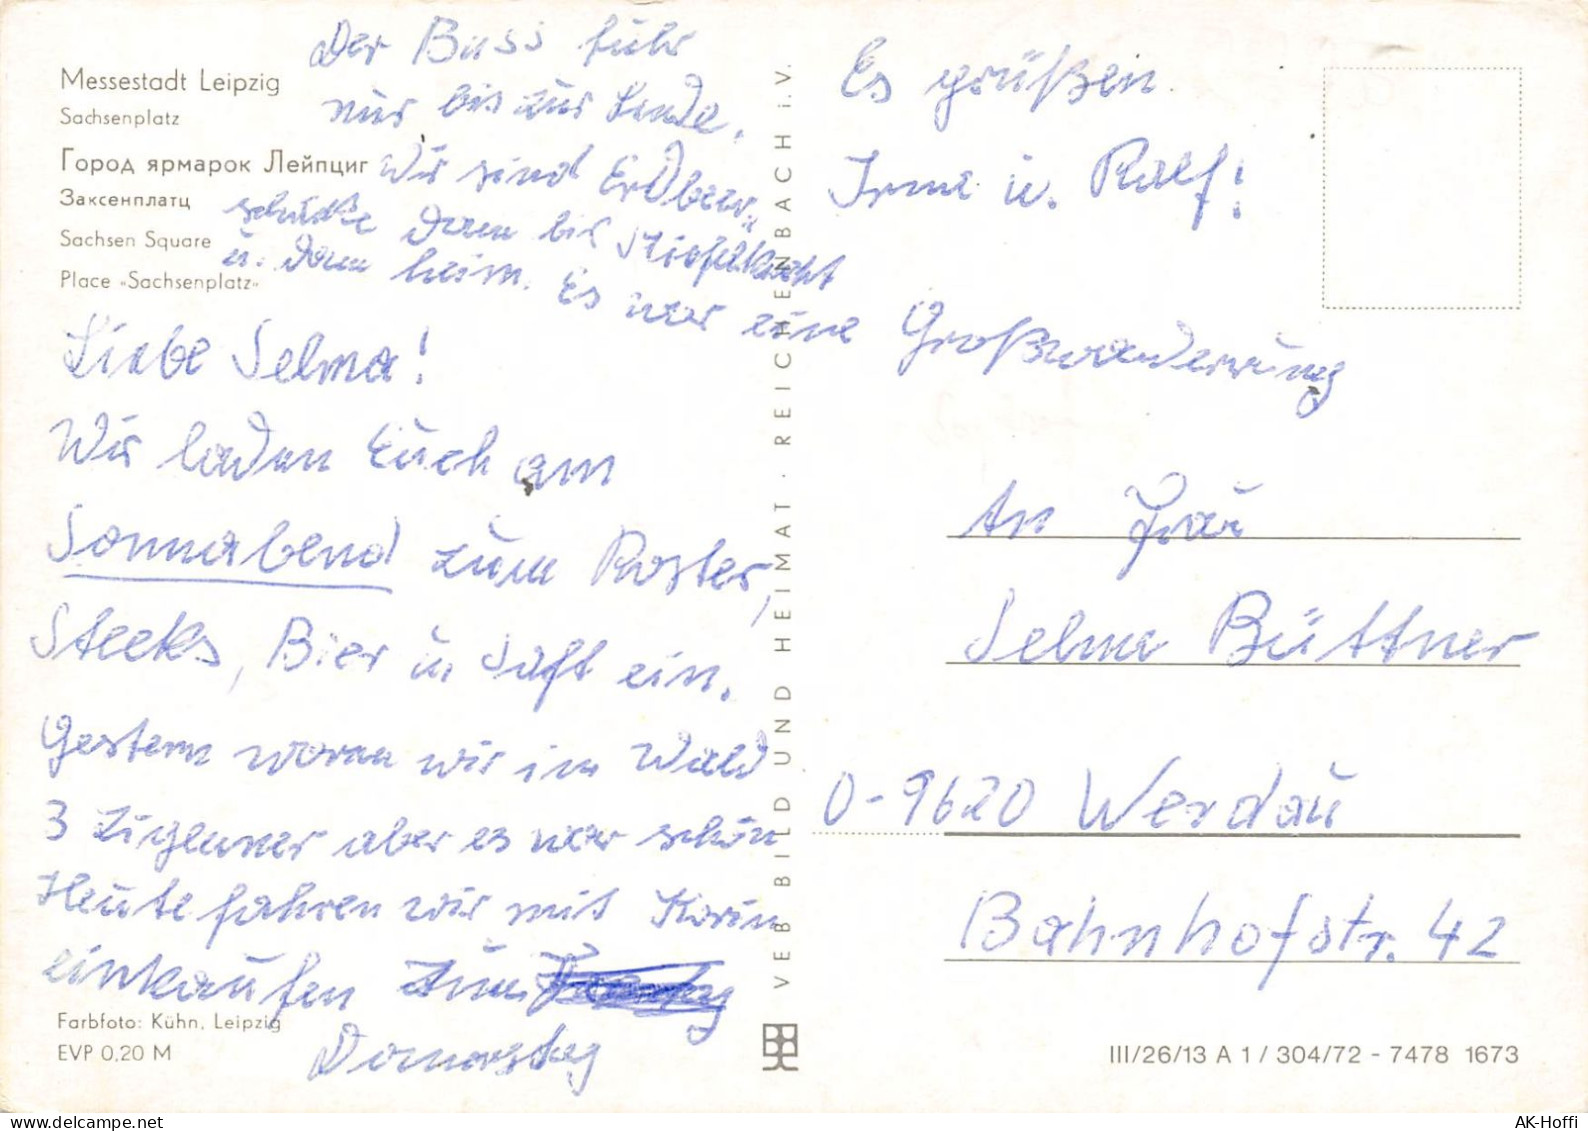 Messestadt Leipzig
Sachsenplatz
Город ярмарок Лейпциг
Заксенплатц
Sachsen Square
Place «Sachsenplatz»
Liebe Selma!
Wir laden Euch am
Sonnabend zum Roster,
Steeks, Bier u. Saft ein.
Gestern waren wir im Wald
3 aber es war schön
Heute fahren wir mit Karin
einkaufen zum
Donnerstag
Der Buss fuhr
nur bis zur Linde.
Wir sind Erdbeer-
schänke dann bis Stiefelknecht
u. dann heim. Es war eine Großwanderung
Es grüßen
Irma u. Ralf!
An Frau
Selma Büttner
O-9620 Werdau
Bahnhofstr. 42
Farbfoto: Kühn, Leipzig
EVP 0,20 M
VEB BILD UND HEIMAT · REICHENBACH i. V.
III/26/13 A 1 / 304/72 - 7478 1673
AK-Hoffi